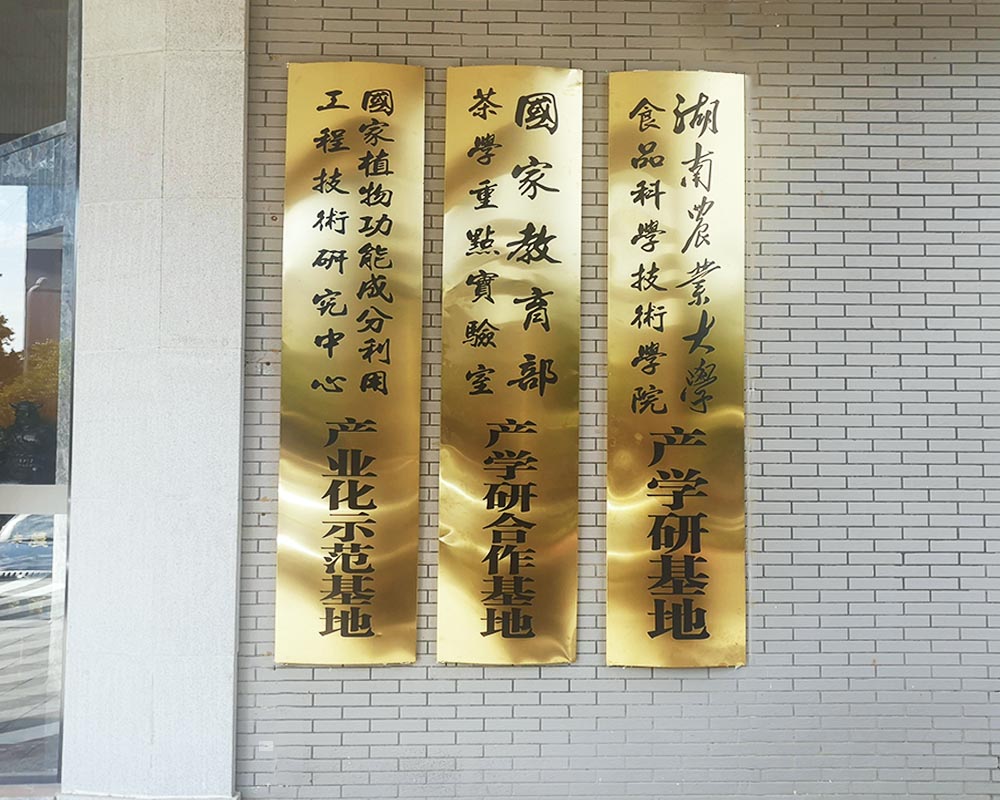 湖南農業大學
食品科學技術學院
产学研基地
國家教育部
茶學重點實驗室
产学研合作基地
國家植物功能成分利用
工程技術研究中心
产业化示范基地